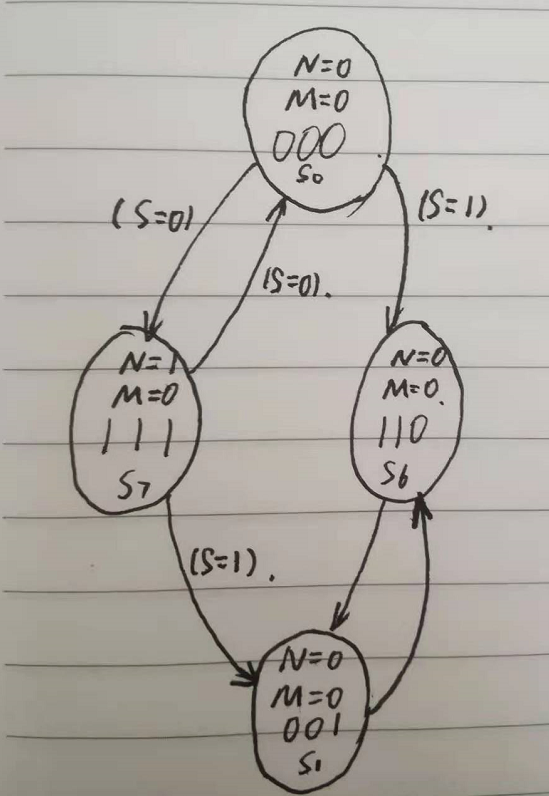 N=0
M=0
000
S0
(S=0)
(S=1).
(S=0).
N=1
M=0
111
S7
N=0
M=0.
110
S6
(S=1).
N=0
M=0
001
S1